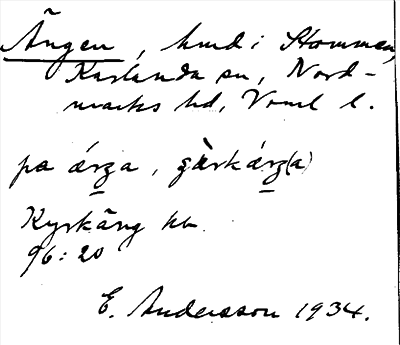 Ängen, hmd i Stommen,
Karlanda sn, Nord-
marks hd, Vrml l.
pa árʒa, gàrkárʒ(a)
Kyrkäng hb
96:20
E. Andersson 1934.